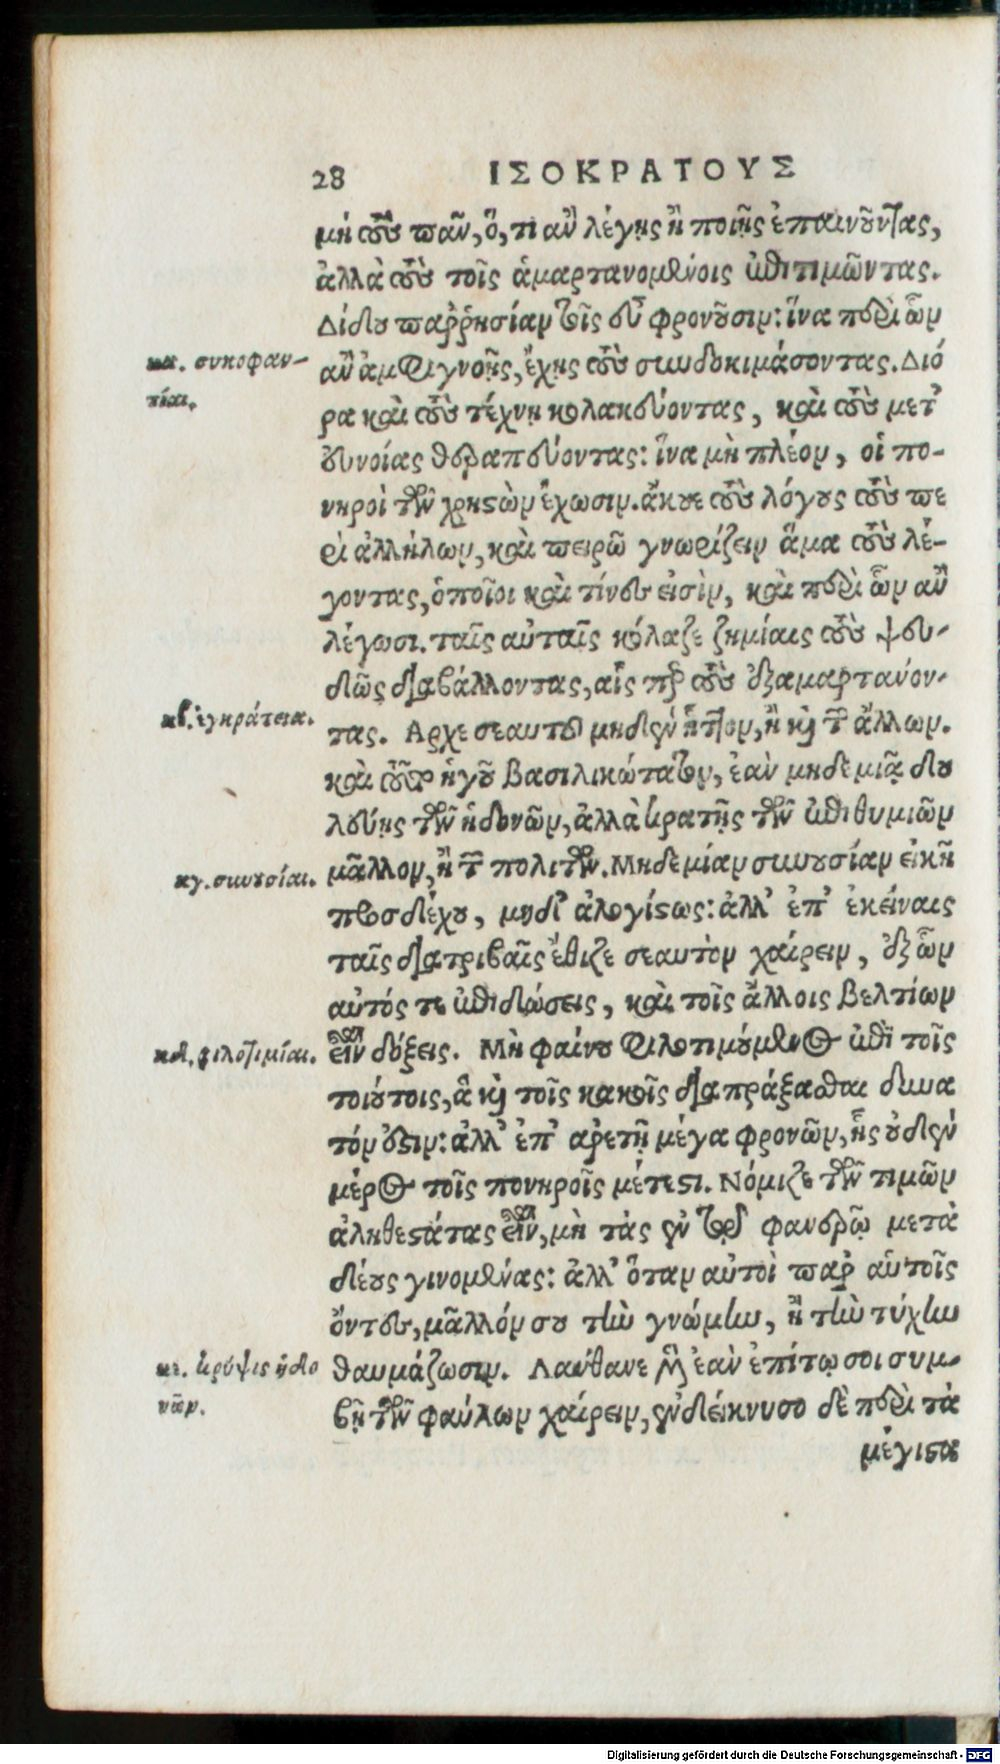 28 ΙΣΟΚΡΑΤΟΥΣ
μή τοὺς πᾶν, ὅ, τι ἂν λέγῃς ἢ ποιῇς ἐπαινοῦντας,
ἀλλὰ τοὺς τοῖς ἁμαρτανομένοις ἐπιτιμῶντας.
Δίδου παῤῥησίαν τοῖς εὖ φρονοῦσιν: ἵνα περὶ ὧν
κα. συκοφαν-
ἂν ἀμφιγνοῇς, ἔχῃς τοὺς συνδοκιμάσοντας. Διό
τίαι.
ρα καὶ τοὺς τέχνῃ κολακεύοντας, καὶ τοὺς μετ'
εὐνοίας θεραπεύοντας: ἵνα μὴ πλέον, οἱ πο-
νηροὶ τῶν χρηστῶν ἔχωσιν. ἄκουε τοὺς λόγους τοὺς πε
ρὶ ἀλλήλων, καὶ πειρῶ γνωρίζειν ἅμα τοὺς λέ-
γοντας, ὁποῖοι καὶ τίνες εἰσὶν, καὶ περὶ ὧν ἂν
λέγωσι. ταῖς αὐταῖς κόλαζε ζημίαις τοὺς ψευ-
δῶς διαβάλλοντας, αἷς περ τοὺς ἐξαμαρτάνον-
κβ. ἐγκράτεια.
τας. Αρχε σεαυτοῦ μηδὲν ἧττον, ἢ καὶ τῶν ἄλλων.
καὶ τοῦτο ἡγοῦ βασιλικώτατον, ἐὰν μηδεμιᾷ δου
λεύῃς τῶν ἡδονῶν, ἀλλὰ κρατῇς τῶν ἐπιθυμιῶν
κγ. συνουσίαι.
μᾶλλον, ἢ τῶν πολιτῶν. Μηδεμίαν συνουσίαν εἰκῆ
προσδέχου, μηδ' ἀλογίστως: ἀλλ' ἐπ' ἐκείναις
ταῖς διατριβαῖς ἔθιζε σεαυτὸν χαίρειν, ἐξ ὧν
αὐτός τε ἐπιδώσεις, καὶ τοῖς ἄλλοις βελτίων
κδ. φιλοτιμίαι.
εἶναι δόξεις. Μὴ φαίνου φιλοτιμούμενος ἐπὶ τοῖς
τοιούτοις, ἃ καὶ τοῖς κακοῖς διαπράξασθαι δυνα
τόν ἐστιν: ἀλλ' ἐπ' ἀρετῇ μέγα φρονῶν, ἧς οὐδὲν
μέρος τοῖς πονηροῖς μέτεστι. Νόμιζε τῶν τιμῶν
ἀληθεστάτας εἶναι, μὴ τὰς ἐν τῷ φανερῷ μετὰ
δέους γινομένας: ἀλλ' ὅταν αὐτοὶ παρ' αὑτοῖς
ὄντες, μᾶλλόν σου τὴν γνώμην, ἢ τὴν τύχην
κε. κρύψις ἡδο
θαυμάζωσιν. Λάνθανε μὲν ἐὰν ἐπί τῳ σοι συμ-
νῶν.
βῇ τῶν φαύλων χαίρειν, ἐνδείκνυσο δὲ περὶ τὰ
μέγιστα
Digitalisierung gefördert durch die Deutsche Forschungsgemeinschaft - DFG